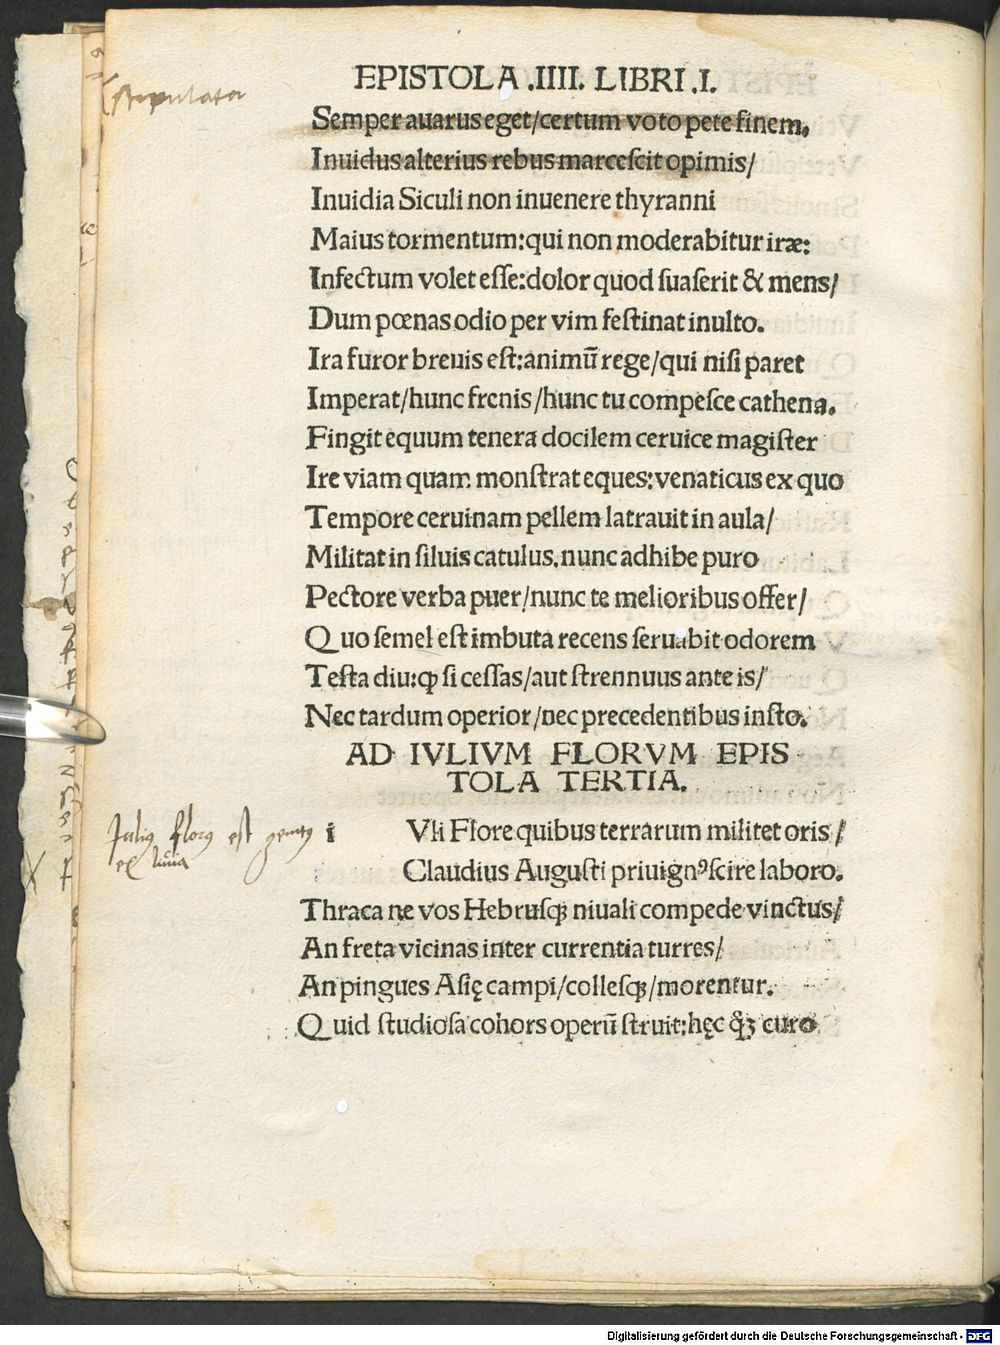 EPISTOLA .IIII. LIBRI .I.
Semper auarus eget/certum voto pete finem.
Inuidus alterius rebus marceſcit opimis/
Inuidia Siculi non inuenere thyranni
Maius tormentum:qui non moderabitur iræ:
Infectum volet eſſe:dolor quod ſuaſerit & mens/
Dum pœnas odio per vim feſtinat inulto.
Ira furor breuis eſt:animũ rege/qui niſi paret
Imperat/hunc frenis/hunc tu compeſce cathena.
Fingit equum tenera docilem ceruice magiſter
Ire viam quam monſtrat eques:venaticus ex quo
Tempore ceruinam pellem latrauit in aula/
Militat in ſiluis catulus.nunc adhibe puro
Pectore verba puer/nunc te melioribus offer/
Quo ſemel eſt imbuta recens ſeruabit odorem
Teſta diu:ꝙ ſi ceſſas/aut ſtrennuus ante is/
Nec tardum operior/nec precedentibus inſto.
AD IVLIVM FLORVM EPIS
TOLA TERTIA.
Iuliꝰ florꝰ est
ex liuia
i Vli Flore quibus terrarum militet oris/
Claudius Auguſti priuignꝰ ſcire laboro.
Thraca ne vos Hebruſꝙ niuali compede vinctus/
An freta vicinas inter currentia turres/
An pingues Aſię campi/colleſꝙ/morentur.
Quid ſtudioſa cohors operũ ſtruit:hęc ꝙ̃ꝫ curo
Digitalisierung gefördert durch die Deutsche Forschungsgemeinschaft - DFG